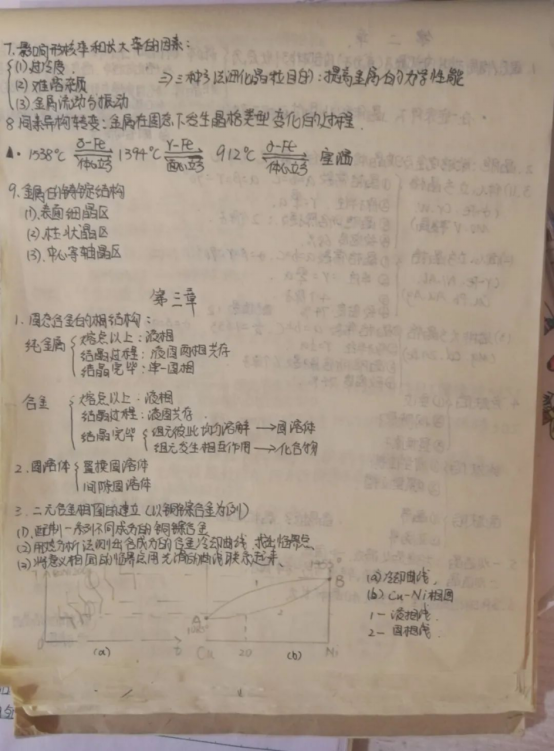 7. 影响形核率和长大率的因素：
(1) 过冷度
(2) 难溶杂质 ⇒ 三种方法细化晶粒目的：提高金属的力学性能
(3) 金属流动与振动
8 同素异构转变：金属在固态下发生晶格类型变化的过程
1538℃ δ-Fe 体心立方 1394℃ γ-Fe 面心立方 912℃ α-Fe 体心立方 室温
9. 金属的铸锭结构
(1). 表面细晶区
(2). 柱状晶区
(3). 中心等轴晶区
第三章
1. 固态合金的相结构：
纯金属 熔点以上：液相
结晶过程：液固两相共存
结晶完毕：单一固相
合金 熔点以上：液相
结晶过程：液固共存
结晶完毕 组元彼此均匀溶解 → 固溶体
组元发生相互作用 → 化合物
2. 固溶体 置换固溶体
间隙固溶体
3. 二元合金相图的建立（以铜镍合金为例）
(1). 配制一系列不同成分的铜镍合金
(2) 用热分析法测出各成分的合金冷却曲线，找出临界点
(3) 将意义相同的临界点用光滑的曲线联系起来、
B
(a) 冷却曲线，
(b) Cu-Ni相图
1- 液相线．
2- 固相线．
A
(a) t Cu 20 (b) Ni